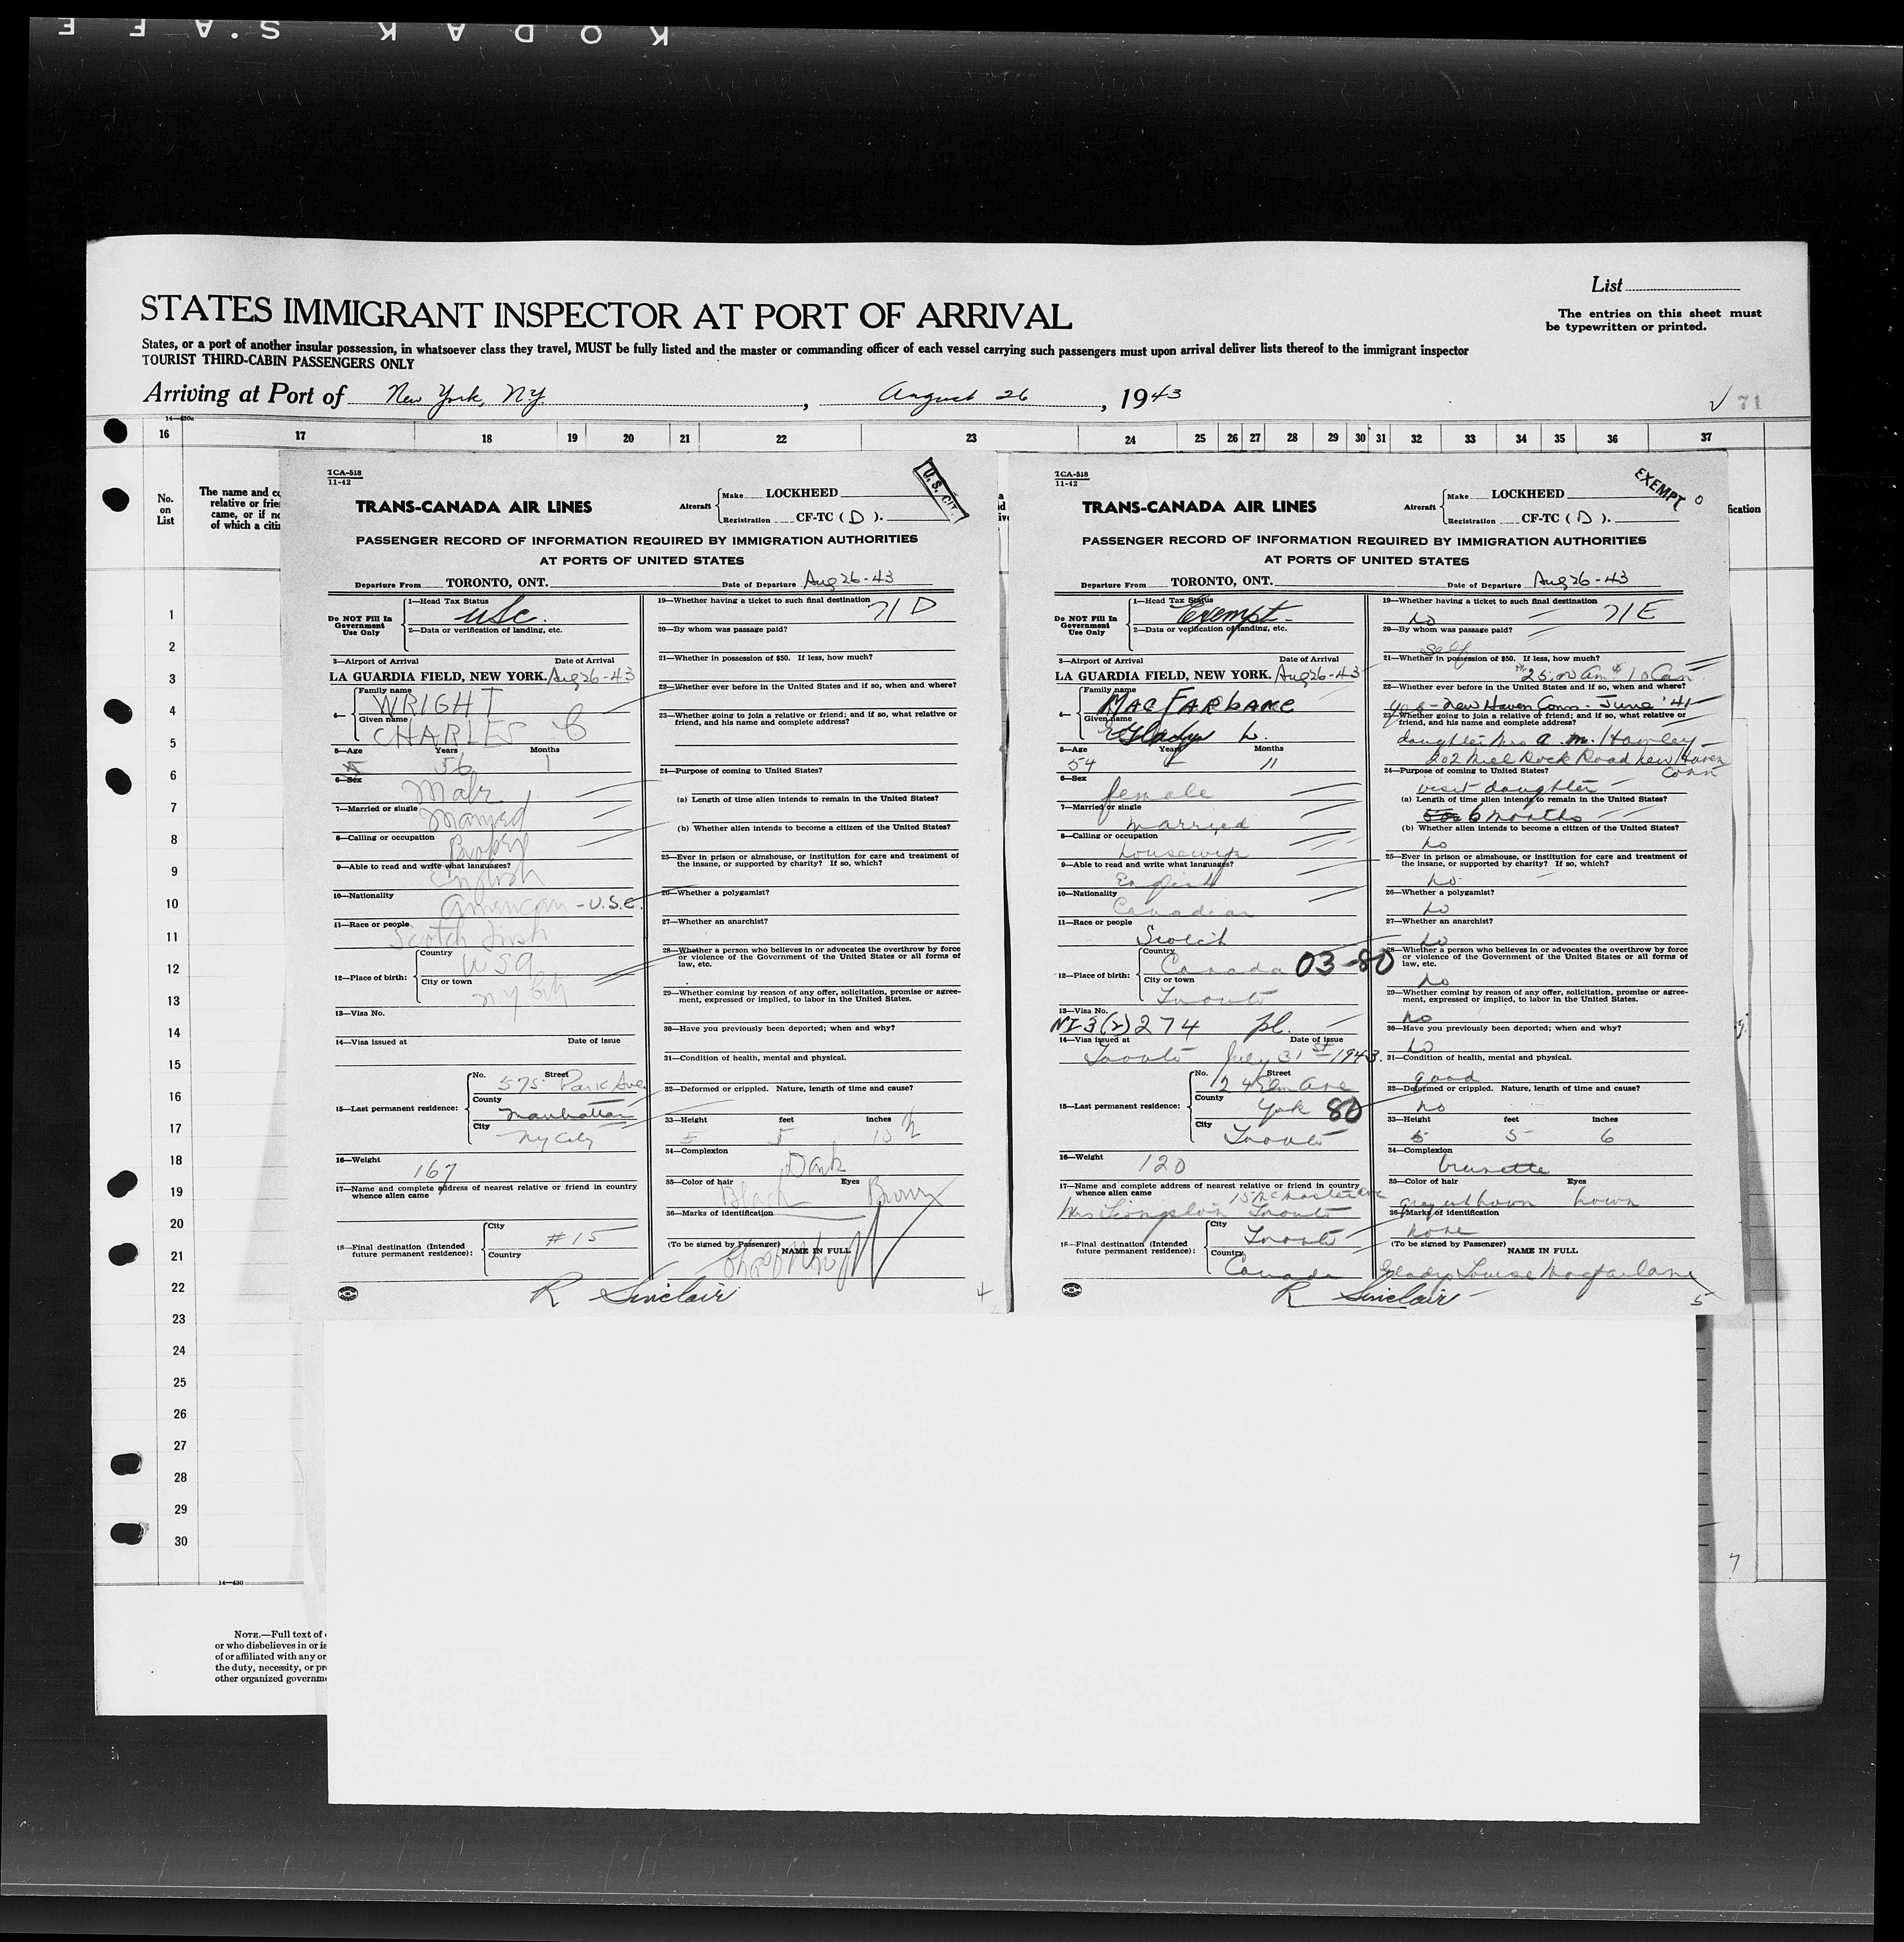 KODAK S.AFE
List
STATES IMMIGRANT INSPECTOR AT PORT OF ARRIVAL
The entries on this sheet must
be typewritten or printed.
States, or a port of another insular possession, in whatsoever class they travel, MUST be fully listed and the master or commanding officer of each vessel carrying such passengers must upon arrival deliver lists thereof to the immigrant inspector
TOURIST THIRD-CABIN PASSENGERS ONLY
Arriving at Port of New York, N.Y. , August 26 , 1943
71
14—430c
16 17 18 19 20 21 22 23 24 25 26 27 28 29 30 31 32 33 34 35 36 37
No.
on
List
The name and co
relative or frie
came, or if no
of which a citi
fication
1
2
3
4
5
6
7
8
9
10
11
12
13
14
15
16
17
18
19
20
21
22
23
24
25
26
27
28
29
30
TCA-518
11-42
U.S. CIT.
TRANS-CANADA AIR LINES
Aircraft
Make LOCKHEED
Registration CF-TC ( D ).
PASSENGER RECORD OF INFORMATION REQUIRED BY IMMIGRATION AUTHORITIES
AT PORTS OF UNITED STATES
Departure From TORONTO, ONT. Date of Departure Aug 26-43
Do NOT Fill In
Government
Use Only
1—Head Tax Status
USC.
2—Data or verification of landing, etc.
3—Airport of Arrival Date of Arrival
LA GUARDIA FIELD, NEW YORK. Aug 26-43
4—
Family name
WRIGHT
Given name
CHARLES
5—Age Years Months
56 1
6—Sex
Male
7—Married or single
Married
8—Calling or occupation
9—Able to read and write what languages?
English
10—Nationality
American - U.S.C.
11—Race or people
Scotch Irish
12—Place of birth:
Country
USA
City or town
NY City
13—Visa No.
14—Visa issued at Date of issue
15—Last permanent residence:
No. Street
575 Park Ave
County
Manhattan
City
NY City
16—Weight
167
17—Name and complete address of nearest relative or friend in country
whence alien came
18—Final destination (Intended
future permanent residence):
City
#15
Country
19—Whether having a ticket to such final destination
71 D
20—By whom was passage paid?
21—Whether in possession of $50. If less, how much?
22—Whether ever before in the United States and if so, when and where?
23—Whether going to join a relative or friend; and if so, what relative or
friend, and his name and complete address?
24—Purpose of coming to United States?
(a) Length of time alien intends to remain in the United States?
(b) Whether alien intends to become a citizen of the United States?
25—Ever in prison or almshouse, or institution for care and treatment of
the insane, or supported by charity? If so, which?
26—Whether a polygamist?
27—Whether an anarchist?
28—Whether a person who believes in or advocates the overthrow by force
or violence of the Government of the United States or all forms of
law, etc.
29—Whether coming by reason of any offer, solicitation, promise or agree-
ment, expressed or implied, to labor in the United States.
30—Have you previously been deported; when and why?
31—Condition of health, mental and physical.
32—Deformed or crippled. Nature, length of time and cause?
33—Height feet inches
5
34—Complexion
Dark
35—Color of hair Eyes
Black Brown
36—Marks of identification
(To be signed by Passenger) NAME IN FULL
R Sinclair
4
TCA-518
11-42
EXEMPT
TRANS-CANADA AIR LINES
Aircraft
Make LOCKHEED
Registration CF-TC ( D ).
PASSENGER RECORD OF INFORMATION REQUIRED BY IMMIGRATION AUTHORITIES
AT PORTS OF UNITED STATES
Departure From TORONTO, ONT. Date of Departure Aug 26-43
Do NOT Fill In
Government
Use Only
1—Head Tax Status
Exempt
2—Data or verification of landing, etc.
3—Airport of Arrival Date of Arrival
LA GUARDIA FIELD, NEW YORK. Aug 26-43
4—
Family name
MACFARLANE
Given name
Gladys L.
5—Age Years Months
54 11
6—Sex
female
7—Married or single
married
8—Calling or occupation
housewife
9—Able to read and write what languages?
English
10—Nationality
Canadian
11—Race or people
Scotch
12—Place of birth:
Country
Canada 03-80
City or town
Toronto
13—Visa No.
NI 3(2) 274 pl.
14—Visa issued at Date of issue
Toronto July 31st 1943.
15—Last permanent residence:
No. Street
24 Elm Ave
County
York 80
City
Toronto
16—Weight
120
17—Name and complete address of nearest relative or friend in country
whence alien came
Mrs Toronto
18—Final destination (Intended
future permanent residence):
City
Toronto
Country
Canada
19—Whether having a ticket to such final destination
no 71 E
20—By whom was passage paid?
self
21—Whether in possession of $50. If less, how much?
25.00 Am $10 Can
22—Whether ever before in the United States and if so, when and where?
yes - New Haven Conn - June '41
23—Whether going to join a relative or friend; and if so, what relative or
friend, and his name and complete address?
daughter Mrs A. M. Hawley
202 Mill Rock Road New Haven
Conn
24—Purpose of coming to United States?
visit daughter
(a) Length of time alien intends to remain in the United States?
6 months
(b) Whether alien intends to become a citizen of the United States?
no
25—Ever in prison or almshouse, or institution for care and treatment of
the insane, or supported by charity? If so, which?
no
26—Whether a polygamist?
no
27—Whether an anarchist?
no
28—Whether a person who believes in or advocates the overthrow by force
or violence of the Government of the United States or all forms of
law, etc.
no
29—Whether coming by reason of any offer, solicitation, promise or agree-
ment, expressed or implied, to labor in the United States.
no
30—Have you previously been deported; when and why?
no
31—Condition of health, mental and physical.
good
32—Deformed or crippled. Nature, length of time and cause?
no
33—Height feet inches
5 6
34—Complexion
brunette
35—Color of hair Eyes
brown
36—Marks of identification
none
(To be signed by Passenger)
NAME IN FULL
Gladys Louise Macfarlane
R Sinclair
5
7
14—430
NOTE.—Full text of
or who disbelieves in or is
of or affiliated with any or
the duty, necessity, or pr
other organized governme